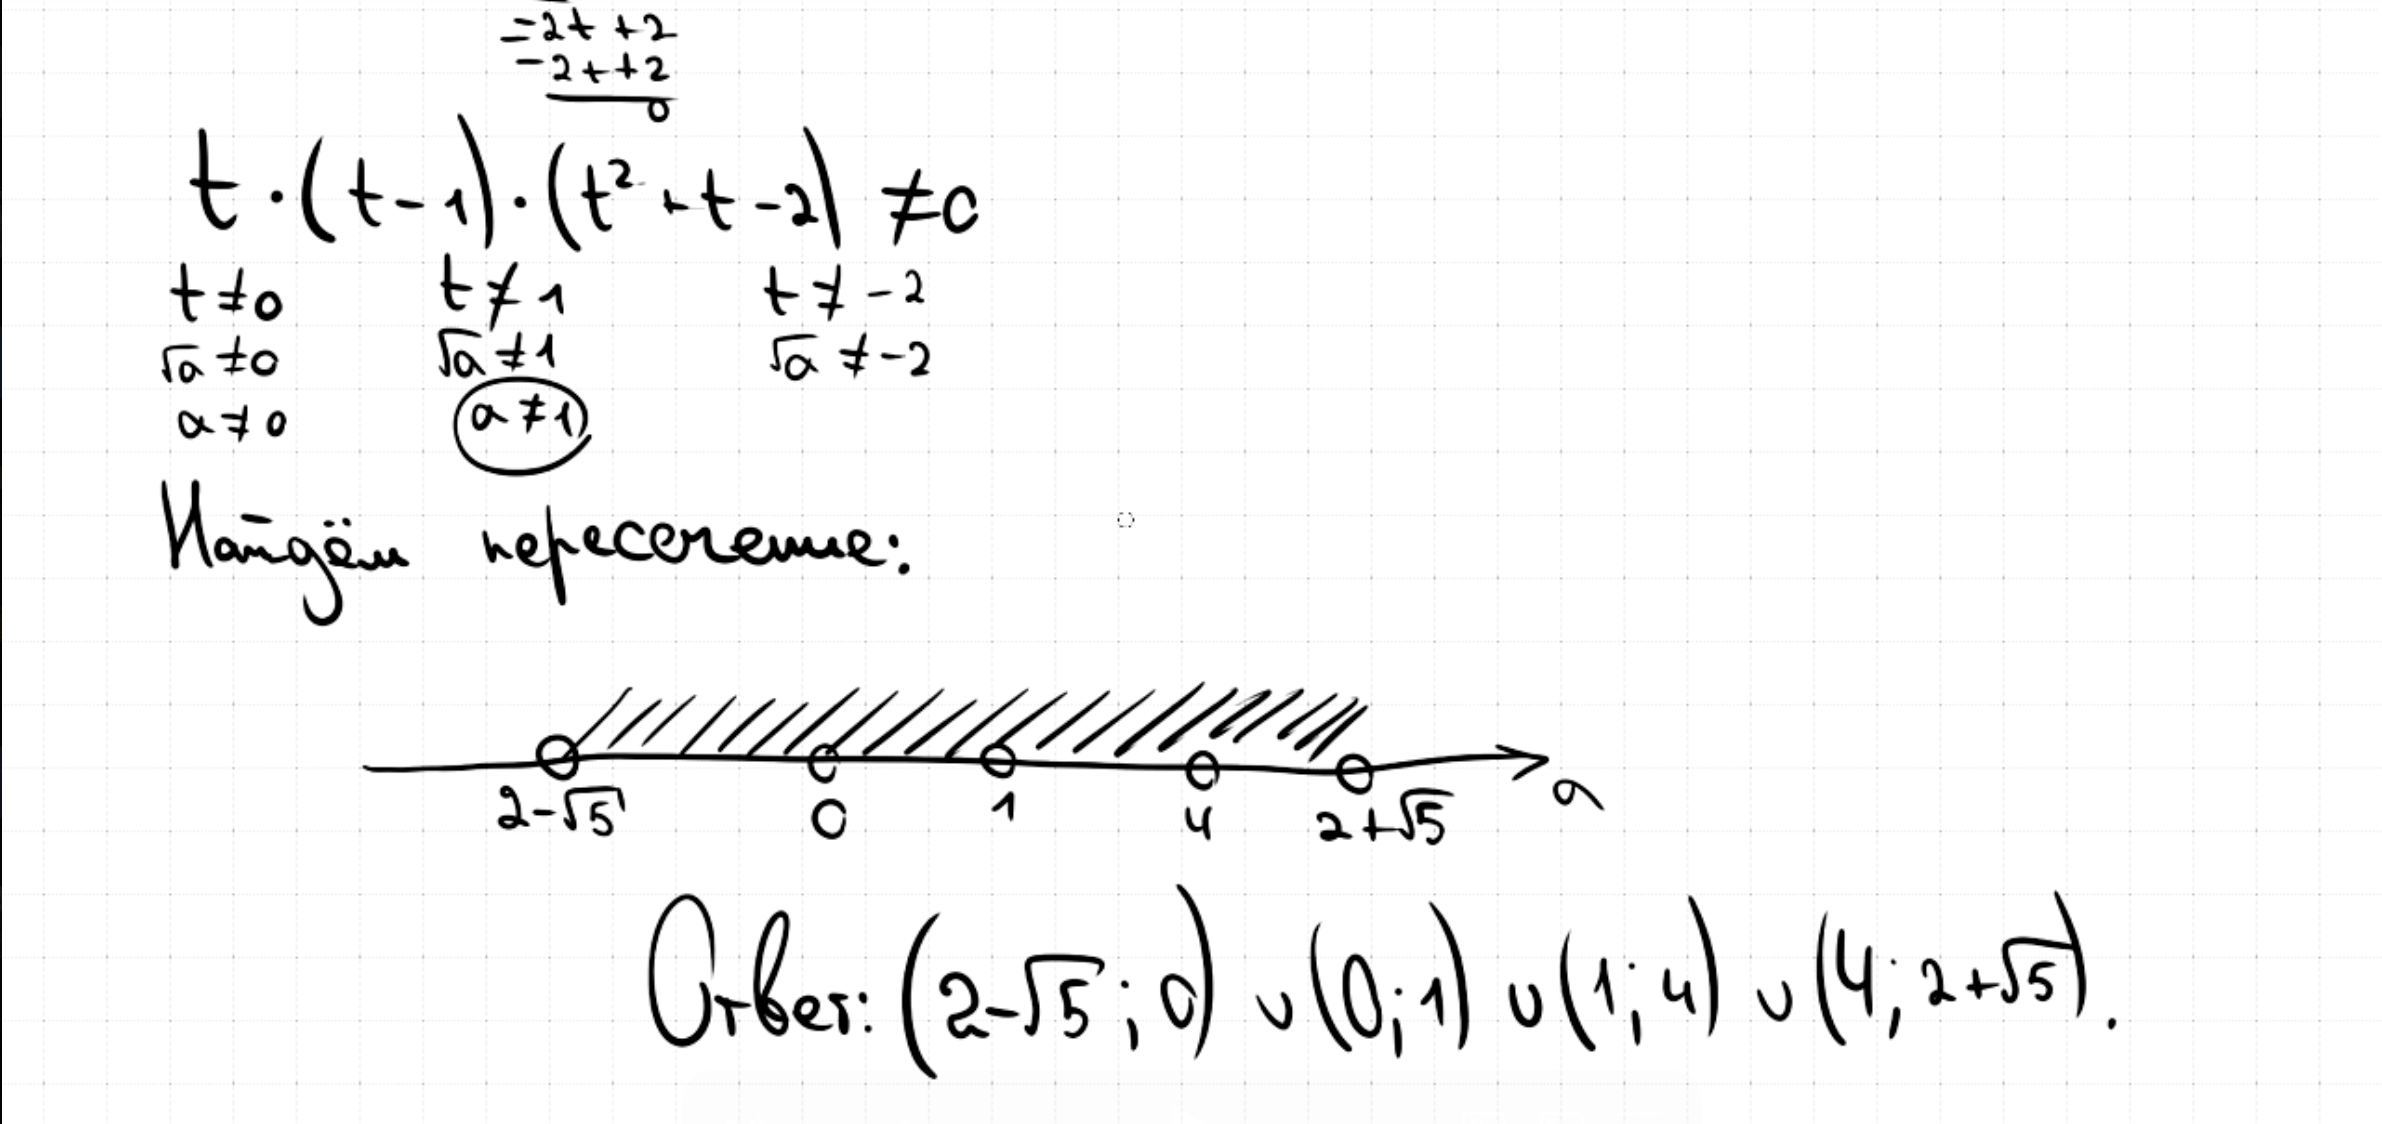 = 2t + 2
-2t + 2
0
t · (t - 1) · (t² + t - 2) ≠ 0
t ≠ 0 t ≠ 1 t ≠ -2
√a ≠ 0 √a ≠ 1 √a ≠ -2
a ≠ 0 a ≠ 1
Найдём пересечение:
2-√5 0 1 4 2+√5 a
Ответ: (2-√5; 0) ∪ (0; 1) ∪ (1; 4) ∪ (4; 2+√5).